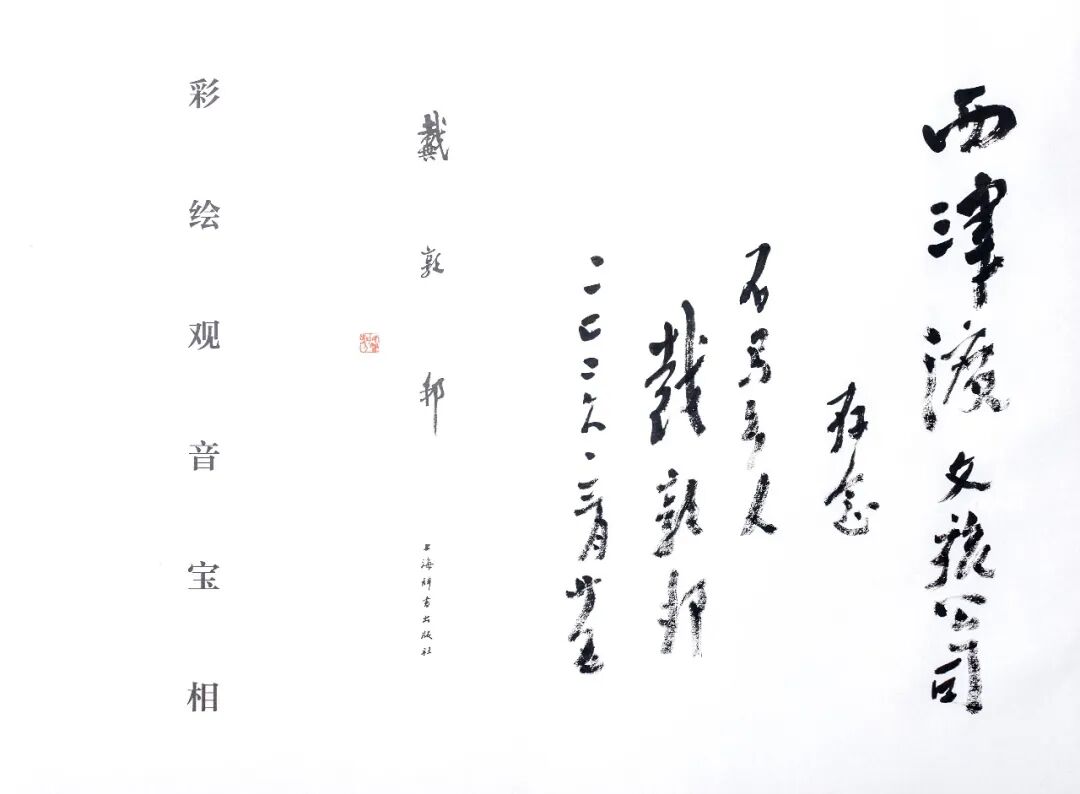 西津渡文旅公司
存念
戴敦邦
二〇二六.三月
戴敦邦
上海辞书出版社
彩绘观音宝相